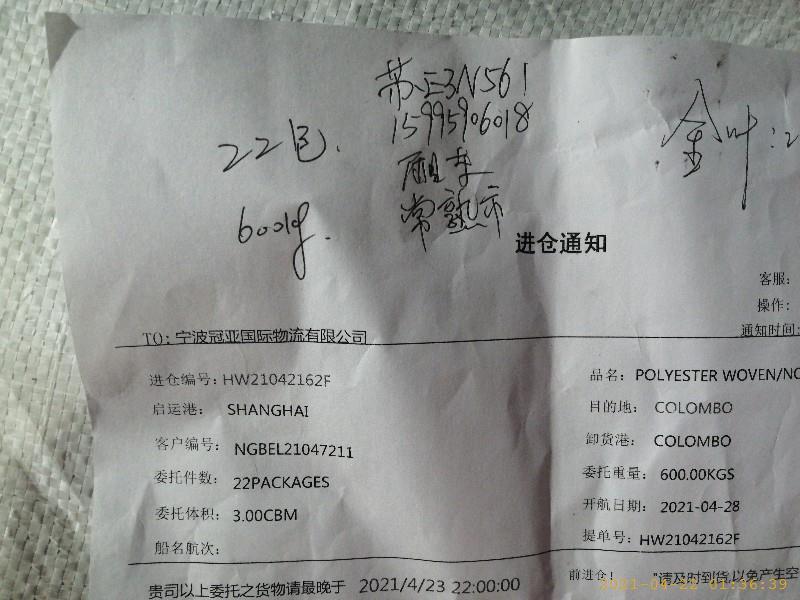 苏E3N561
15995906018
22包.
金叶:2
常熟市
600kg.
进仓通知
客服:
操作:
通知时间:
TO: 宁波冠亚国际物流有限公司
进仓编号: HW21042162F
品名: POLYESTER WOVEN/NO
启运港: SHANGHAI
目的地: COLOMBO
客户编号: NGBEL21047211
卸货港: COLOMBO
委托件数: 22PACKAGES
委托重量: 600.00KGS
委托体积: 3.00CBM
开航日期: 2021-04-28
船名航次:
提单号: HW21042162F
贵司以上委托之货物请最晚于 2021/4/23 22:00:00 前进仓! "请及时到货,以免产生空
2021-04-22 01:36:39